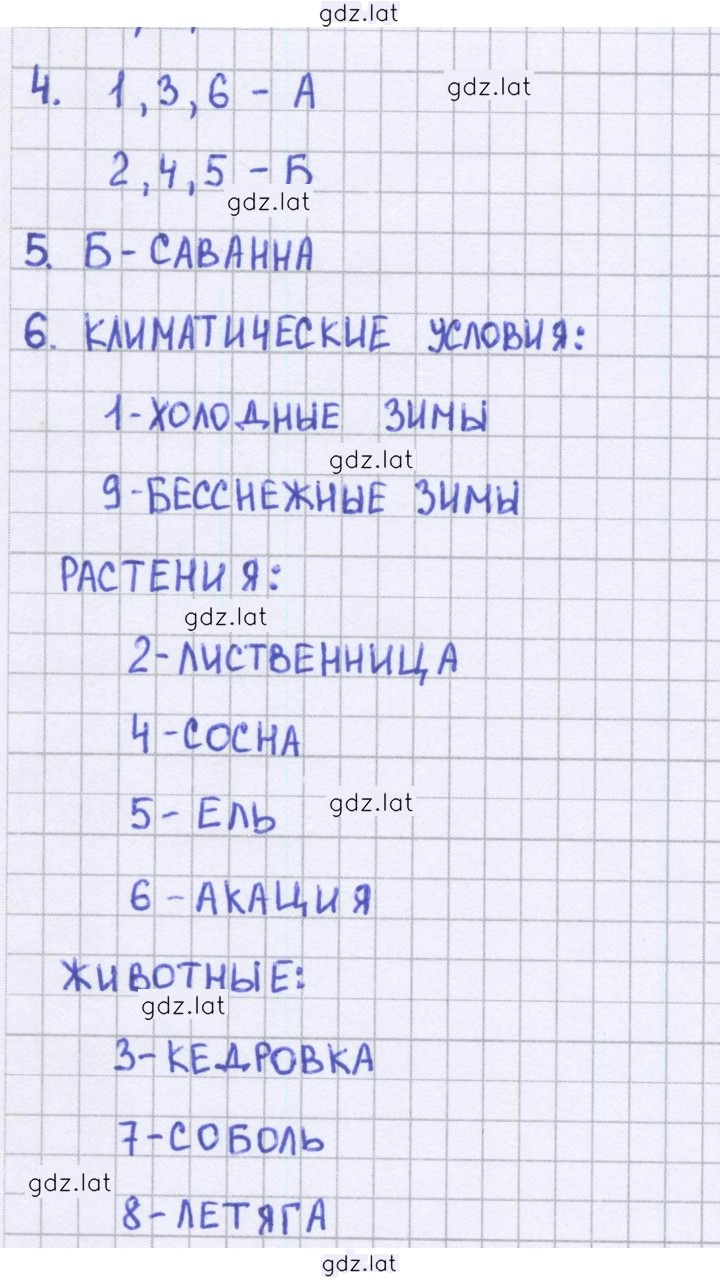 gdz.lat
4. 1, 3, 6 - А
gdz.lat
2, 4, 5 - Б
gdz.lat
5. Б - САВАННА
6. КЛИМАТИЧЕСКИЕ УСЛОВИЯ:
1 - ХОЛОДНЫЕ ЗИМЫ
gdz.lat
9 - БЕССНЕЖНЫЕ ЗИМЫ
РАСТЕНИЯ:
gdz.lat
2 - ЛИСТВЕННИЦА
4 - СОСНА
gdz.lat
5 - ЕЛЬ
6 - АКАЦИЯ
ЖИВОТНЫЕ:
gdz.lat
3 - КЕДРОВКА
7 - СОБОЛЬ
gdz.lat
8 - ЛЕТЯГА
gdz.lat